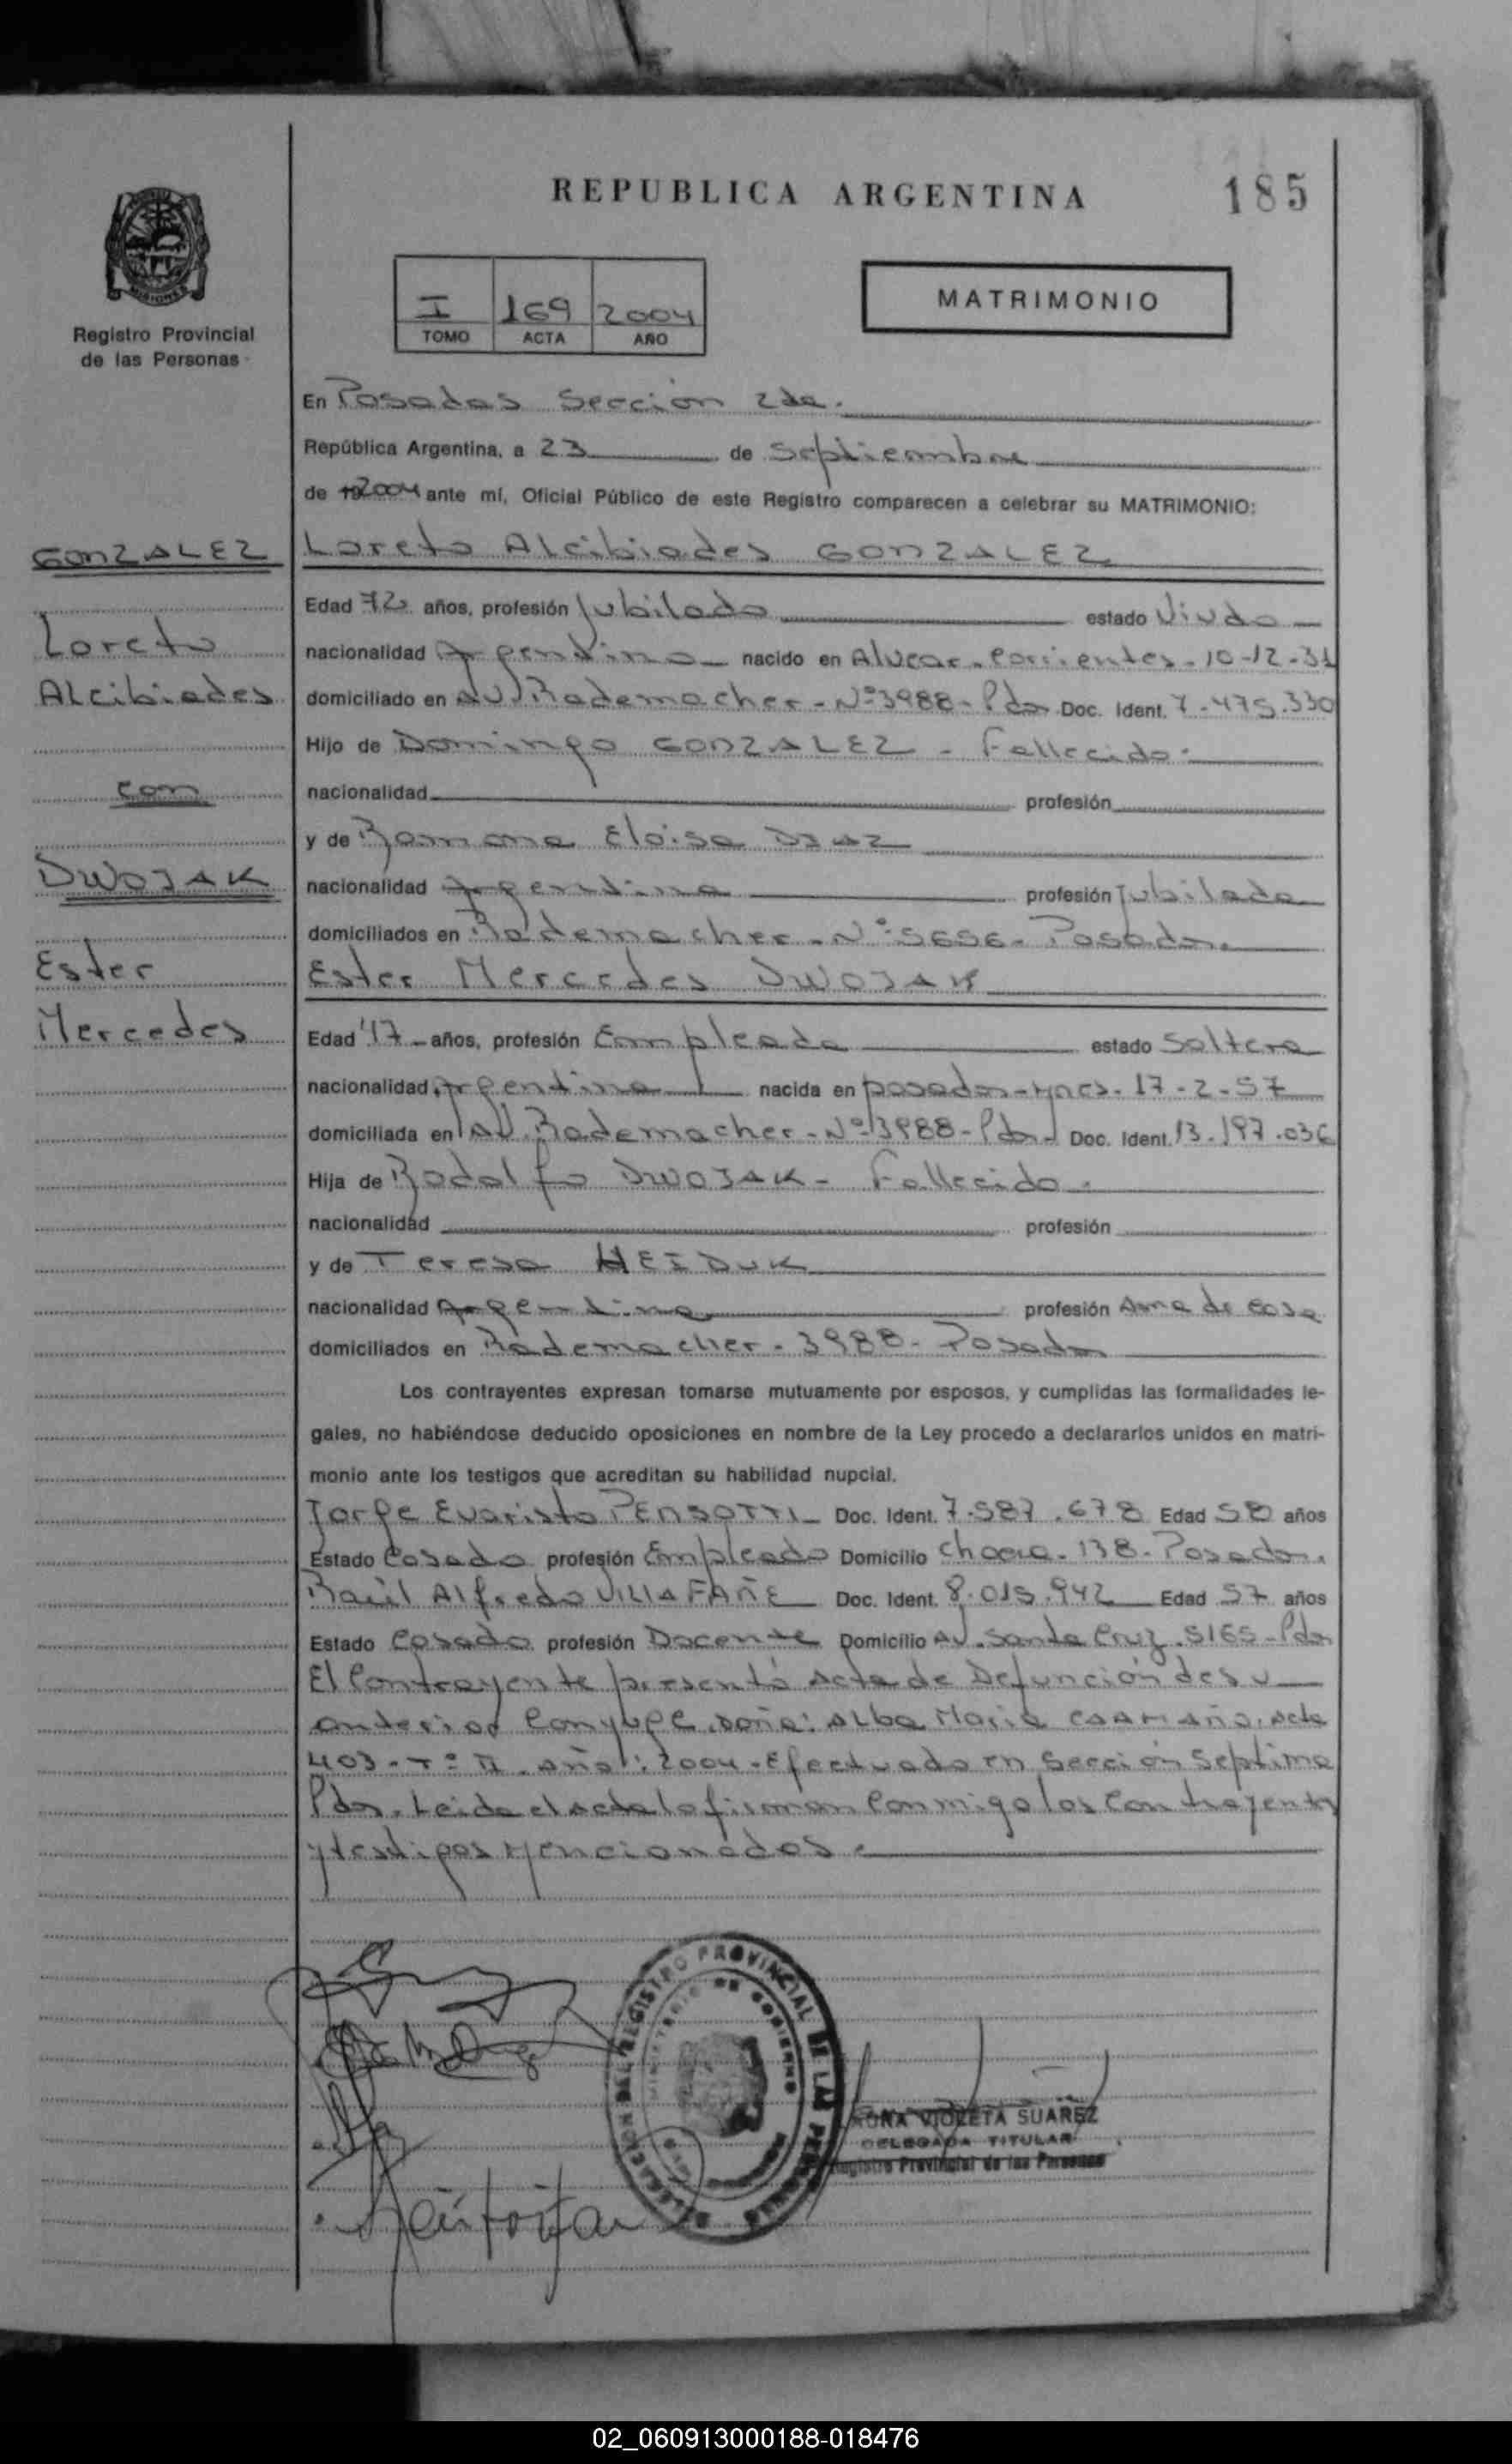 REPUBLICA ARGENTINA
185
MISIONES
Registro Provincial
de las Personas
I 169 2004
TOMO ACTA AÑO
MATRIMONIO
En Posadas Sección 2da.
República Argentina, a 23 de Septiembre
de 2004 ante mí, Oficial Público de este Registro comparecen a celebrar su MATRIMONIO:
GONZALEZ
Loreto
Alcibiades
con
DWOJAK
Ester
Mercedes
Loreto Alcibiades GONZALEZ
Edad 72 años, profesión Jubilado estado Viudo
nacionalidad Argentino nacido en Alvear - Corrientes - 10-12-31
domiciliado en AV. Rademacher - Nº 3988 - Pdas Doc. Ident. 7.475.330
Hijo de Domingo GONZALEZ - Fallecido.
nacionalidad profesión
y de Ramona Eloisa DIAZ
nacionalidad Argentina profesión Jubilada
domiciliados en Rademacher - Nº 5656 - Posadas.
Ester Mercedes DWOJAK
Edad 47 años, profesión Empleada estado Soltera
nacionalidad Argentina nacida en posadas - Mnes - 17-2-57
domiciliada en AV. Rademacher - Nº 3988 - Pdas Doc. Ident. 13.197.036
Hija de Rodolfo DWOJAK - Fallecido.
nacionalidad profesión
y de Teresa HEIDUK
nacionalidad Argentina profesión Ama de Casa
domiciliados en Rademacher - 3988 - Posadas
Los contrayentes expresan tomarse mutuamente por esposos, y cumplidas las formalidades le-
gales, no habiéndose deducido oposiciones en nombre de la Ley procedo a declararlos unidos en matri-
monio ante los testigos que acreditan su habilidad nupcial.
Jorge Evaristo PENSOTTI Doc. Ident. 7.587.678 Edad 58 años
Estado Casado profesión Empleado Domicilio 138 - Posadas.
Raúl Alfredo VILLAFAÑE Doc. Ident. 8.015.942 Edad 57 años
Estado Casado profesión Docente Domicilio AV. Santa Cruz 5165 - Pdas
El Contrayente presentó Acta de Defunción de su
anterior Conyuge doña: Alba Maria CAAMAÑO, Acta
403 - Tº II - Año: 2004 - Efectuado en Sección Septima
Pdas. Leida el acta la firman Conmigo los Contrayentes
y testigos mencionados.
DELEGACION DEL REGISTRO PROVINCIAL DE LAS PERSONAS
MINISTERIO DE GOBIERNO
VIOLETA SUAREZ
DELEGADA TITULAR
Registro Provincial de las Personas
02_060913000188-018476